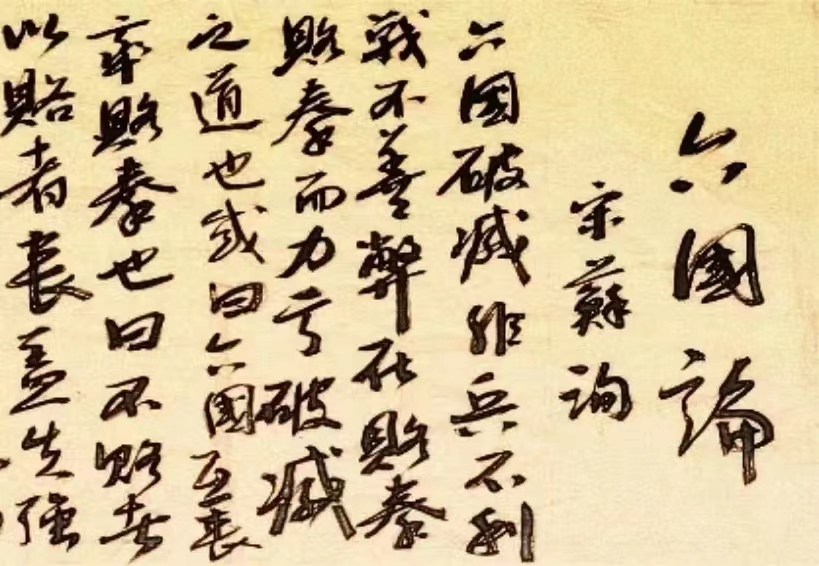 六國論
宋蘇洵
六國破滅非兵不利
戰不善弊在賂秦
賂秦而力亏破滅
之道也或曰六國互喪
率賂秦也曰不賂者
以賂者喪盖失强